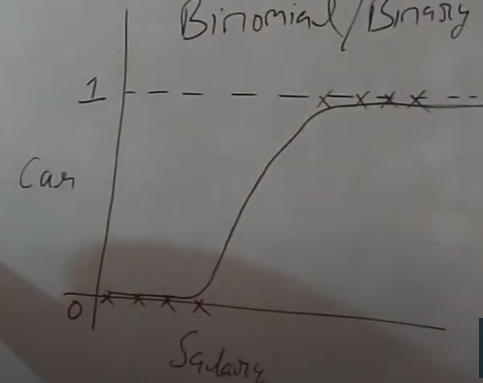 Binomial/Binary
1
Car
0
Salary